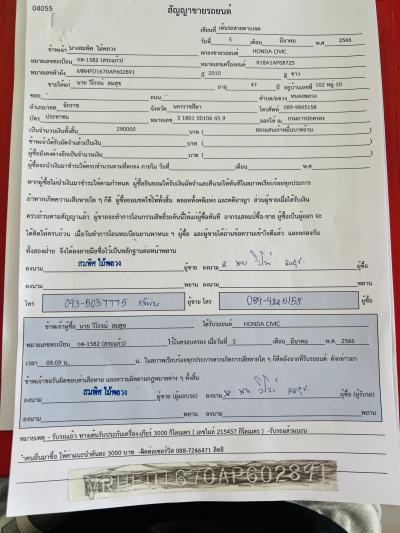 04055
สัญญาขายรถยนต์
เขียนที่ เต้นรถสวยตาบเจต
วันที่ 5 เดือน มีนาคม พ.ศ 2566
ข้าพเจ้า นางสมพิศ ไม้พลวง ตกลงขายรถยนต์ HONDA CIVIC
หมายเลขทะเบียน กต-1582 (สระแก้ว) หมายเลขเครื่องยนต์ R18A1AP08725
หมายเลขตัวถัง MRHFD1670AP602891 ปี 2010 สี ขาว
ขายให้แก่ นาย วิโรจน์ สมสุข อายุ 47 ปี อยู่บ้านเลขที่ 102 หมู่ 10
ซอย - ถนน - ตำบล/แขวง หนองพลวง
อำเภอ/เขต จักราช จังหวัด นครราชสีมา โทรศัพท์ 089-9845158
บัตร ประชาชน หมายเลข 3 1801 00106 45 9 ออกให้ ณ กรมการปกครอง
เป็นจำนวนเงินทั้งสิ้น 290000 บาท ( สองแสนเก้าหมื่นบาทถ้วน )
ข้าพเจ้าได้รับมัดจำแล้วเป็นเงิน บาท ( )
ผู้ซื้อยังคงค้างอีกเป็นจำนวนเงิน บาท ( )
ผู้ซื้อจะนำเงินมาชำระให้ครบจำนวนตามที่ตกลง ภายใน วันที่ เดือน พ.ศ
หากผู้ซื้อไม่นำเงินมาชำระตามกำหนด ผู้ซื้อยินยอมให้รับเงินมัดจำและคืนรถให้ทันทีในสภาพเรียบร้อยทุกประการ
ถ้าหากเกิดความเสียหายใด ๆ ก็ดี ผู้ซื้อยอมชดใช้ให้ทั้งสิ้น ตลอดทั้งคดีแพ่ง และคดีอาญา ส่วนผู้ขายเมื่อได้รับเงิน
ครบถ้วนตามสัญญาแล้ว ผู้ขายจะทำการโอนกรรมสิทธิ์รถคันนี้ให้แก่ผู้ซื้อทันที จากรณสดแก่ซื้อ-ขาย ผู้ซื้อเป็นผู้ออก จะ
ได้คิดให้ครบถ้วน เมื่อวันทำการโอนทะเบียนยานพาหนะ ฯ ผู้ซื้อ และผู้ขายได้อ่านข้อความเข้าใจดีแล้ว และตกลงกัน
ทั้งสองฝ่าย จึงได้ลงลายมือชื่อไว้เป็นหลักฐานต่อหน้าพยาน
ลงนาม สมพิศ ไม้พลวง ผู้ขาย ลงนาม นาย วิโรจน์ สมสุข ผู้ซื้อ
ลงนาม พยาน ลงนาม พยาน
โทร 093-5037775 ผู้ขาย โทร 089-9845158 ผู้ซื้อ
ข้าพเจ้าผู้ซื้อ นาย วิโรจน์ สมสุข ได้รับรถยนต์ HONDA CIVIC
หมายเลขทะเบียน กต-1582 (สระแก้ว) ไว้ในครอบครอง เมื่อวันที่ 5 เดือน มีนาคม พ.ศ. 2566
เวลา 09.09 น. น. ในสภาพเรียบร้อยทุกประการหากเกิดการเสียหายใด ๆ ก็ดีหลังจากที่รับรถยนต์ ดังกล่าวมา
ข้าพเจ้าขอรับผิดชอบค่าเสียหาย และความผิดตามกฎหมายต่าง ๆ ทั้งสิ้น
ลงนาม สมพิศ ไม้พลวง ผู้ขาย (ผู้มอบรถ) ลงนาม นาย วิโรจน์ สมสุข ผู้ซื้อ (ผู้รับรถ)
ลงนาม พยาน ลงนาม พยาน
หมายเหตุ - รับรถแล้ว ทางเต้นรับประกันเครื่อง-เกียร์ 3000 กิโลเมตร ( เลขไมล์ 215457 กิโลเมตร ) -รับรถแล้วแถม
ำคนอื่นมาซื้อ ให้ค่าแนะนำคันละ 3000 บาท -ติดต่อเซอร์วิส 088-7246471 สิทธิ์
MRHFD1670AP602891